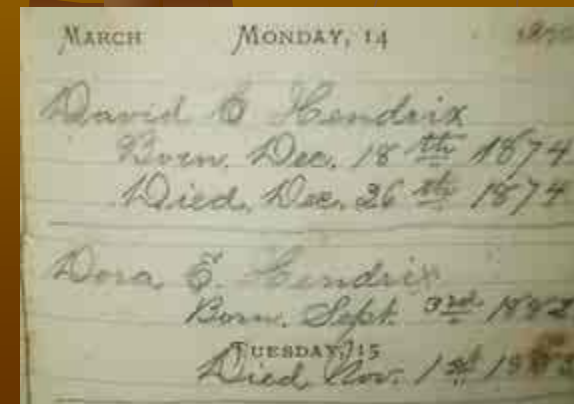 MARCH MONDAY, 14
David E Hendrix
Born. Dec. 18th 1874
Died. Dec. 26th 1874
Dora E. Hendrix
Born. Sept. 3rd
TUESDAY, 15
Died, Nov. 1st